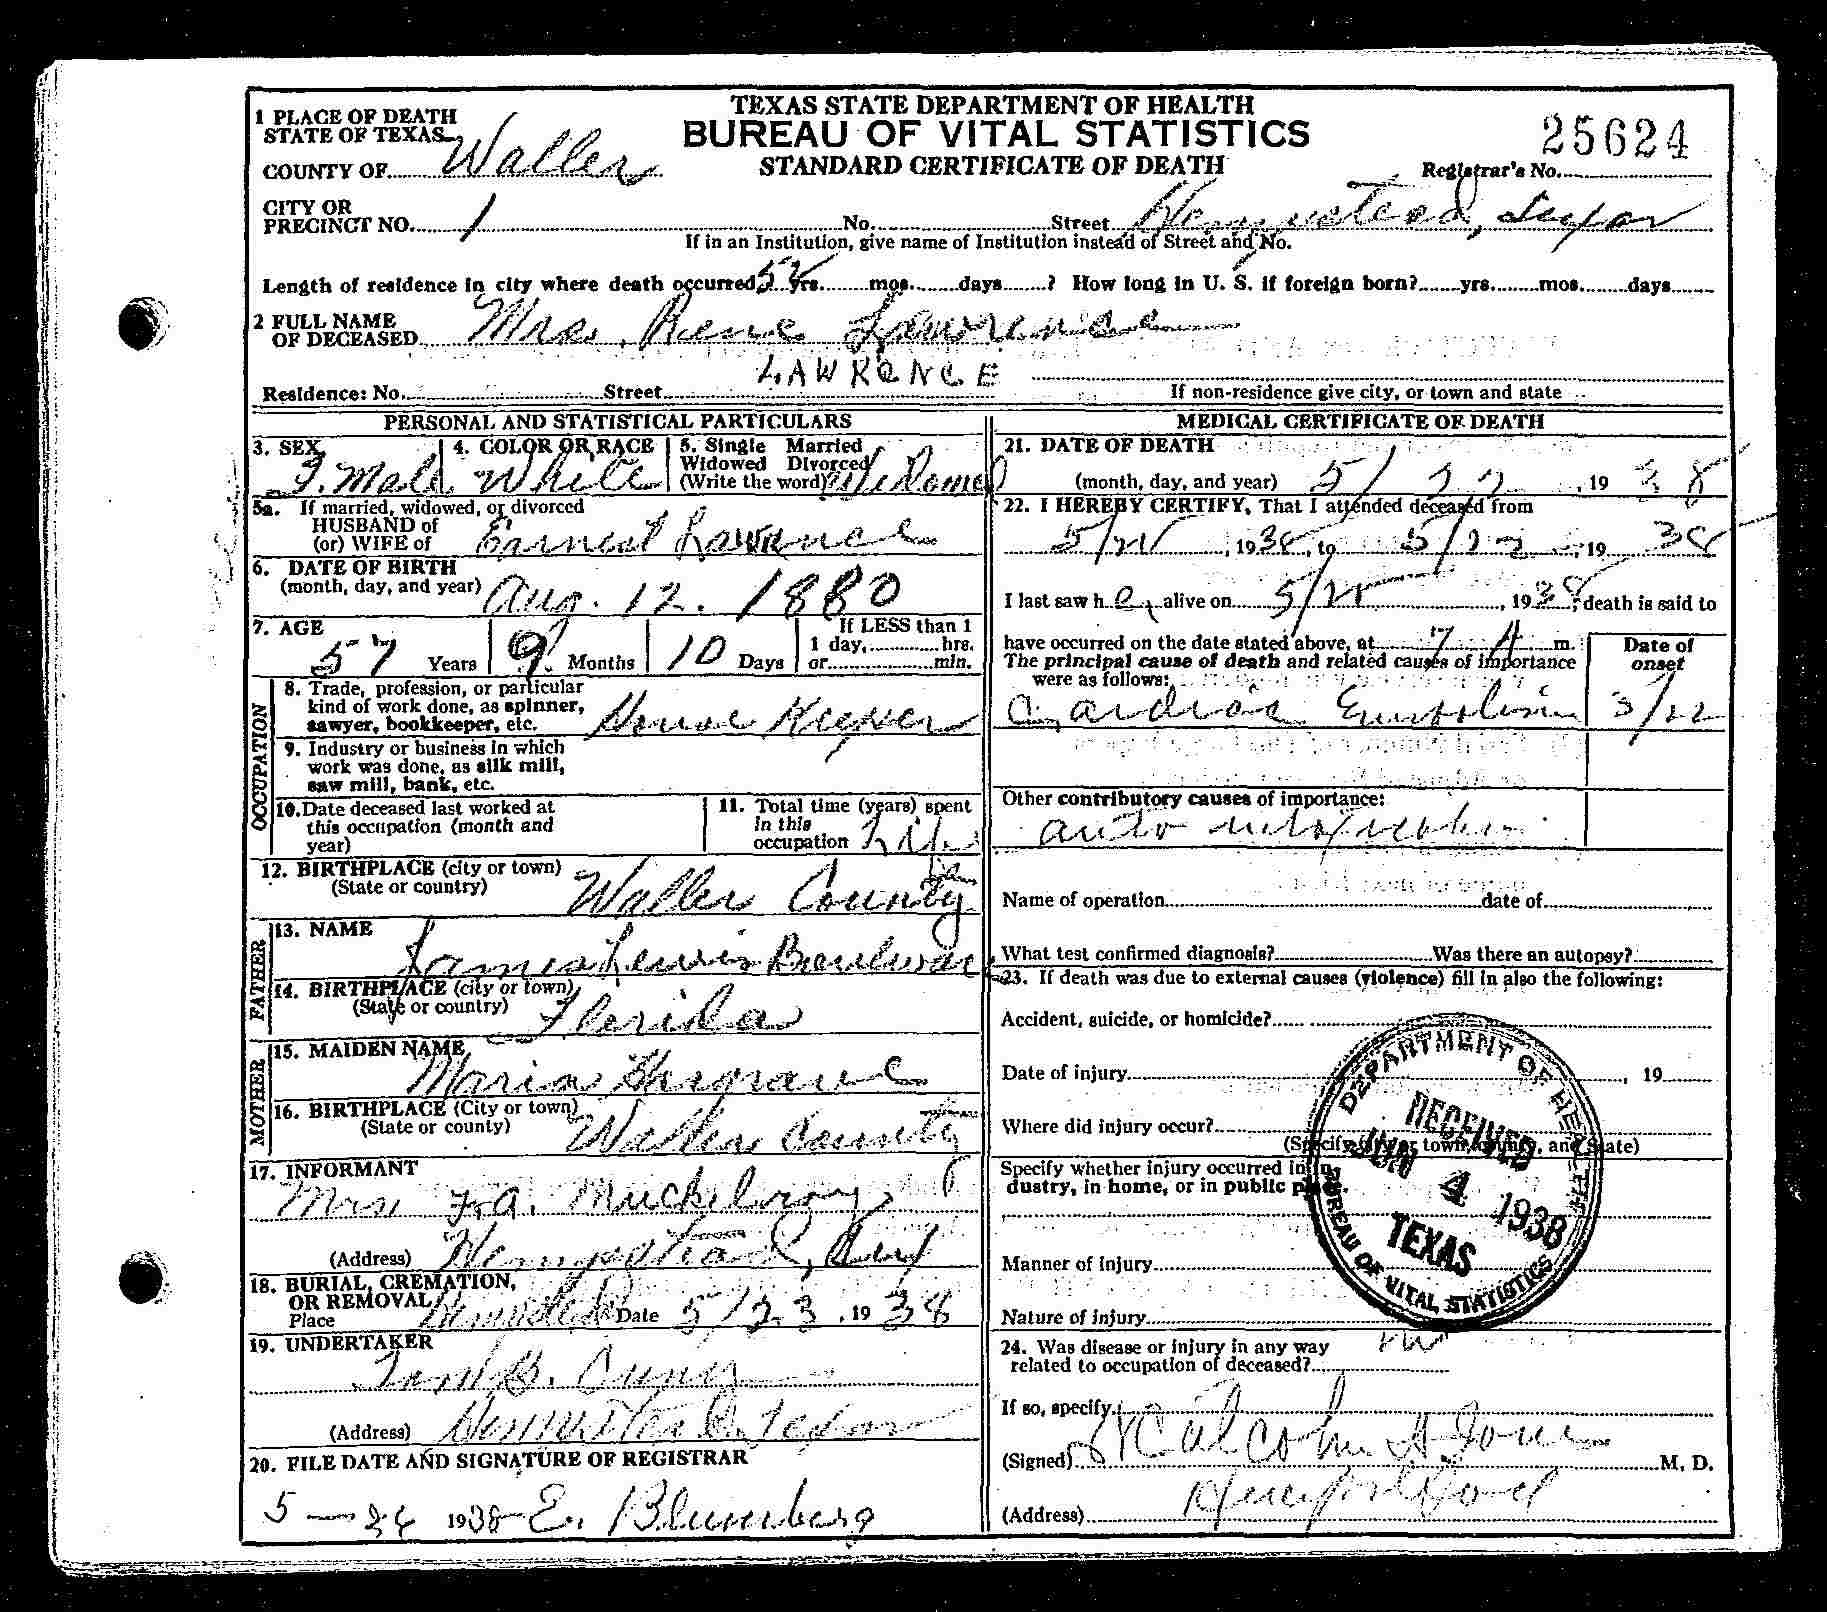 TEXAS STATE DEPARTMENT OF HEALTH
BUREAU OF VITAL STATISTICS
STANDARD CERTIFICATE OF DEATH
25624
Registrar's No.
1 PLACE OF DEATH
STATE OF TEXAS
COUNTY OF Waller
CITY OR
PRECINCT NO. 1 No. Street Hempstead, Texas
If in an Institution, give name of Institution instead of Street and No.
Length of residence in city where death occurred yrs. mos. days ? How long in U. S. if foreign born? yrs. mos. days
2 FULL NAME
OF DECEASED Mrs. Rene Lawrence
LAWRENCE
Residence: No. Street If non-residence give city, or town and state
PERSONAL AND STATISTICAL PARTICULARS
3. SEX 4. COLOR OR RACE 5. Single Married
Widowed Divorced
F. Male White (Write the word) Widowed
5a. If married, widowed, or divorced
HUSBAND of
(or) WIFE of Earnest Lawrence
6. DATE OF BIRTH
(month, day, and year) Aug. 12. 1880
7. AGE If LESS than 1
1 day, hrs.
57 Years 9 Months 10 Days or min.
OCCUPATION
8. Trade, profession, or particular
kind of work done, as spinner,
sawyer, bookkeeper, etc. House Keeper
9. Industry or business in which
work was done, as silk mill,
saw mill, bank, etc.
10. Date deceased last worked at
this occupation (month and
year)
11. Total time (years) spent
in this
occupation Life
12. BIRTHPLACE (city or town)
(State or country) Waller County
FATHER
13. NAME
James Lewis
14. BIRTHPLACE (city or town)
(State or country) Florida
MOTHER
15. MAIDEN NAME
Maria Hargrave
16. BIRTHPLACE (City or town)
(State or county) Waller County
17. INFORMANT
Mrs. F. A. Muckelroy
(Address) Hempstead, Tex
18. BURIAL, CREMATION,
OR REMOVAL
Place Hempstead Date 5/23, 1938
19. UNDERTAKER
Tom B. Cuny
(Address) Hempstead, Texas
20. FILE DATE AND SIGNATURE OF REGISTRAR
5 — 1938 E. Blumberg
MEDICAL CERTIFICATE OF DEATH
21. DATE OF DEATH
(month, day, and year) 5/22, 1938
22. I HEREBY CERTIFY, That I attended deceased from
, 1938, to 5/22, 1938
I last saw her alive on , 1938, death is said to
have occurred on the date stated above, at 7 A m.
The principal cause of death and related causes of importance
were as follows:
Date of
onset
Cardiac Embolism
Other contributory causes of importance:
auto intoxication
Name of operation date of
What test confirmed diagnosis? Was there an autopsy?
23. If death was due to external causes (violence) fill in also the following:
Accident, suicide, or homicide?
Date of injury , 19
Where did injury occur?
(Specify city or town, county, and State)
Specify whether injury occurred in in-
dustry, in home, or in public place.
Manner of injury
Nature of injury
24. Was disease or injury in any way
related to occupation of deceased? no
If so, specify
(Signed) Malcolm A Jones M, D.
(Address)
DEPARTMENT OF HEALTH
RECEIVED
JUN 4 1938
TEXAS
BUREAU OF VITAL STATISTICS